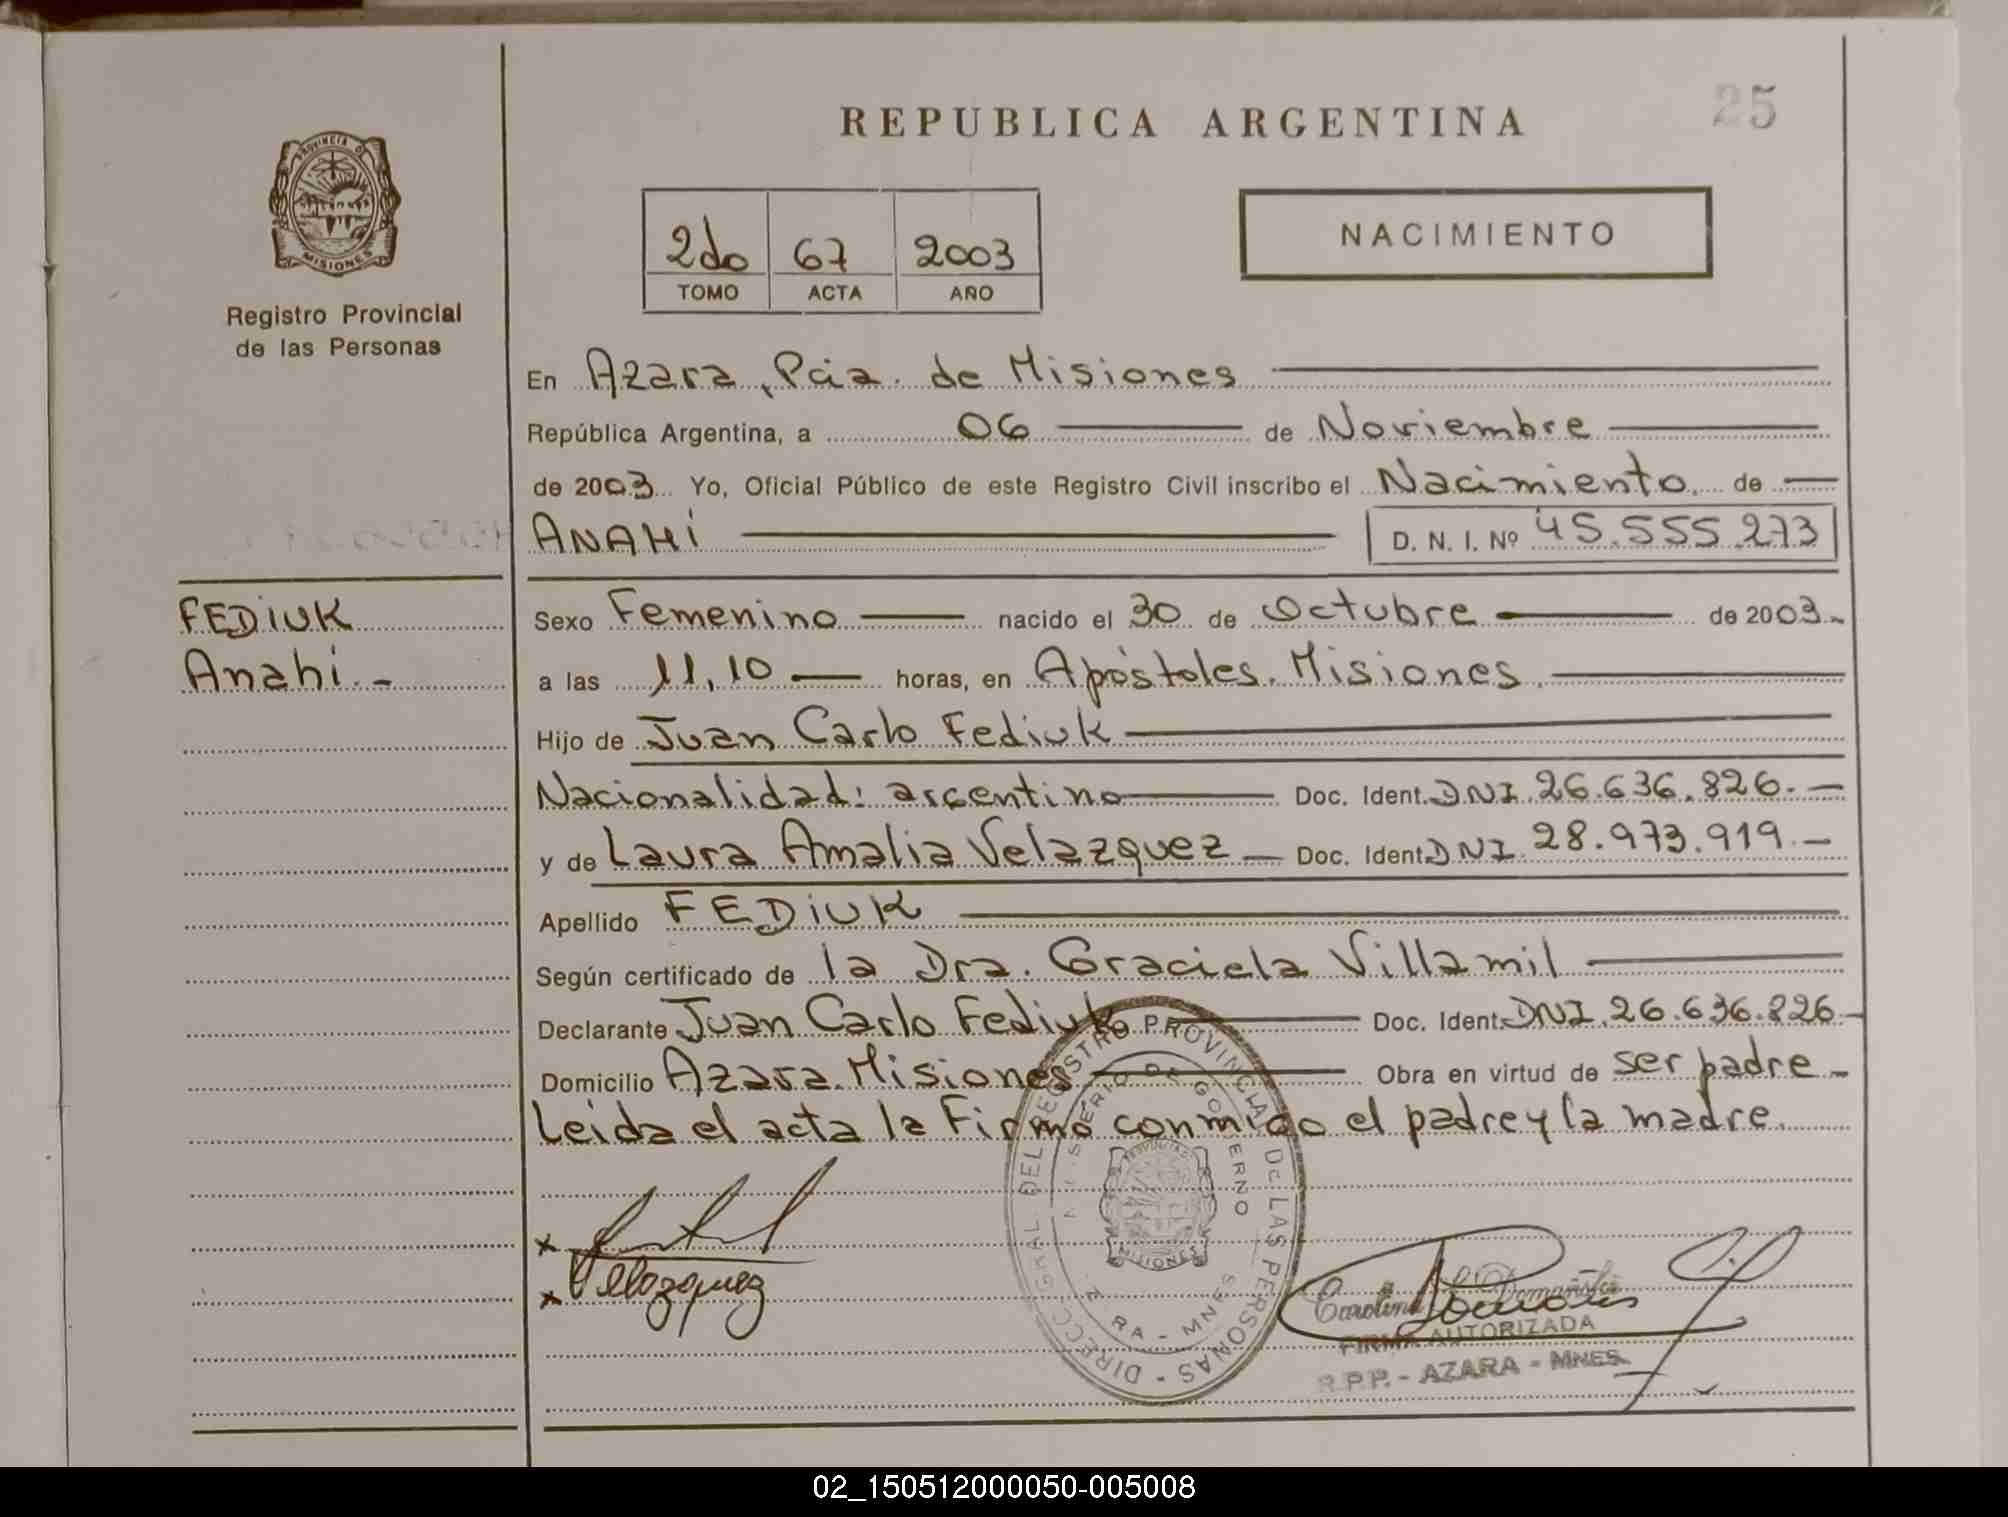 REPUBLICA ARGENTINA
25
PROVINCIA DE
MISIONES
Registro Provincial
de las Personas
2do 67 2003
TOMO ACTA AÑO
NACIMIENTO
En Azara, Pcia. de Misiones
República Argentina, a 06 de Noviembre
de 2003 Yo, Oficial Público de este Registro Civil inscribo el Nacimiento de
ANAHí D. N. I. Nº 45.555.273
FEDiUK
Anahí.-
Sexo Femenino nacido el 30 de Octubre de 2003.-
a las 11,10 horas, en Apóstoles. Misiones.
Hijo de Juan Carlo Fediuk
Nacionalidad: argentino Doc. Ident. DNI 26.636.826.-
y de Laura Amalia Velazquez - Doc. Ident. DNI 28.973.919.-
Apellido FEDiUK
Según certificado de la Dra. Graciela Villamil
Declarante Juan Carlo Fediuk Doc. Ident. DNI. 26.636.826-
Domicilio Azara. Misiones Obra en virtud de ser padre -
Leída el acta la Firmó conmigo el padre y la madre.
DIRECC. GRAL. DEL REGISTRO PROVINCIAL De LAS PERSONAS -
MINISTERIO DE GOBIERNO
AZARA - MNES
MISIONES
x
x Velazquez
Carolina
FIRMA AUTORIZADA
R.P.P. - AZARA - MNES.
02_150512000050-005008